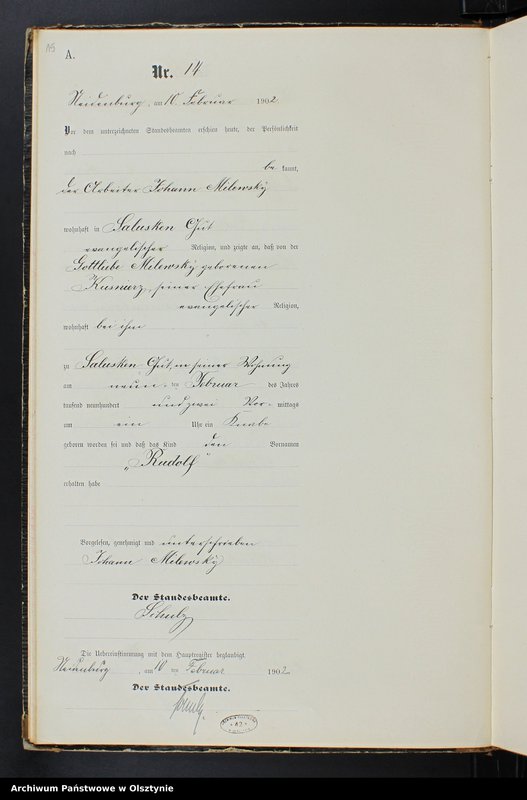 A.
Nr. 14
Neidenburg, am 10. Februar 1902.
Vor dem unterzeichneten Standesbeamten erschien heute, der Persönlichkeit
nach
be kannt,
der Arbeiter Johann Milewsky
wohnhaft in Salusken Gut
evangelischer Religion, und zeigte an, daß von der
Gottliebe Milewsky geborenen
seiner Ehefrau
evangelischer Religion,
wohnhaft bei ihm
zu Salusken Gut, in seiner Wohnung
am neun ten Februar des Jahres
tausend neunhundert und zwei Vor- mittags
um ein Uhr ein Knabe
geboren worden sei und daß das Kind den Vornamen
„Rudolf"
erhalten habe
Vorgelesen, genehmigt und unterschrieben
Johann Milewsky
Der Standesbeamte.
Schulz
Die Uebereinstimmung mit dem Hauptregister beglaubigt
Neidenburg, am 10 ten Februar 1902
Der Standesbeamte.
Schulz.
Archiwum Państwowe w Olsztynie